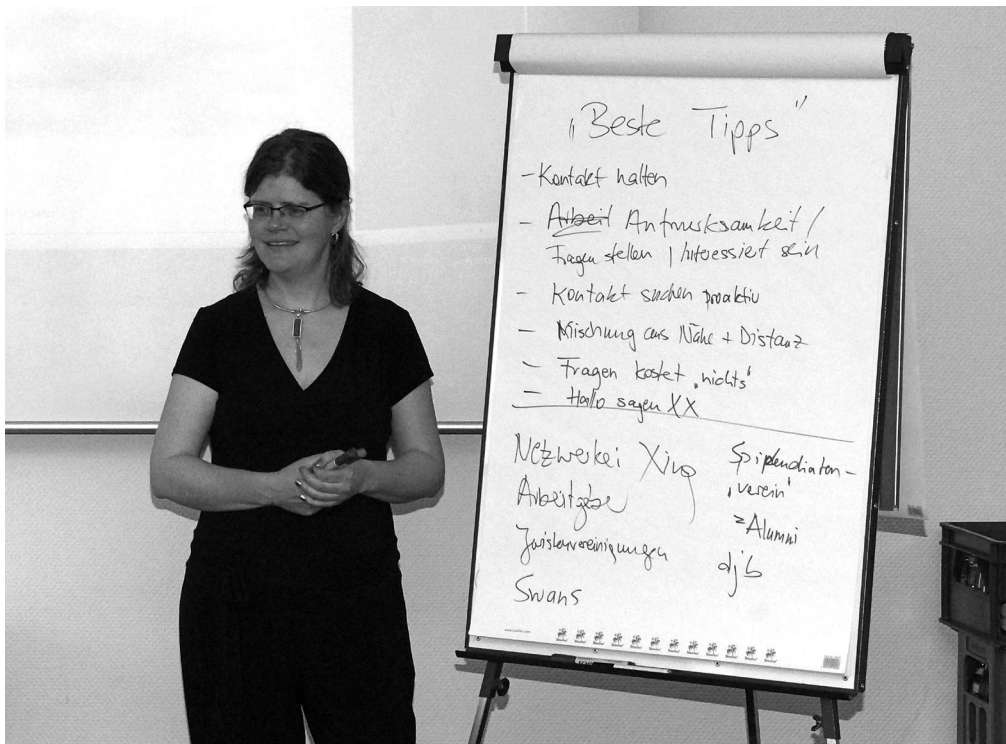 „Beste Tipps"
- Kontakt halten
- Arbeit Aufmerksamkeit /
Fragen stellen / Interessiert sein
- Kontakt suchen proaktiv
- Mischung aus Nähe + Distanz
- Fragen kostet „nichts"
- Hallo sagen XX
Netzwerke: Xing
Arbeitgeber
Juristenvereinigungen
Swans
Stipendiaten-
„verein"
=Alumni
djb